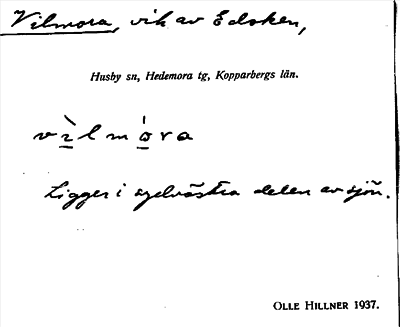 Vilmora, vik av Edsken,
Husby sn, Hedemora tg, Kopparbergs län.
vìlmóra
Ligger i sydvästra delen av sjön.
OLLE HILLNER 1937.